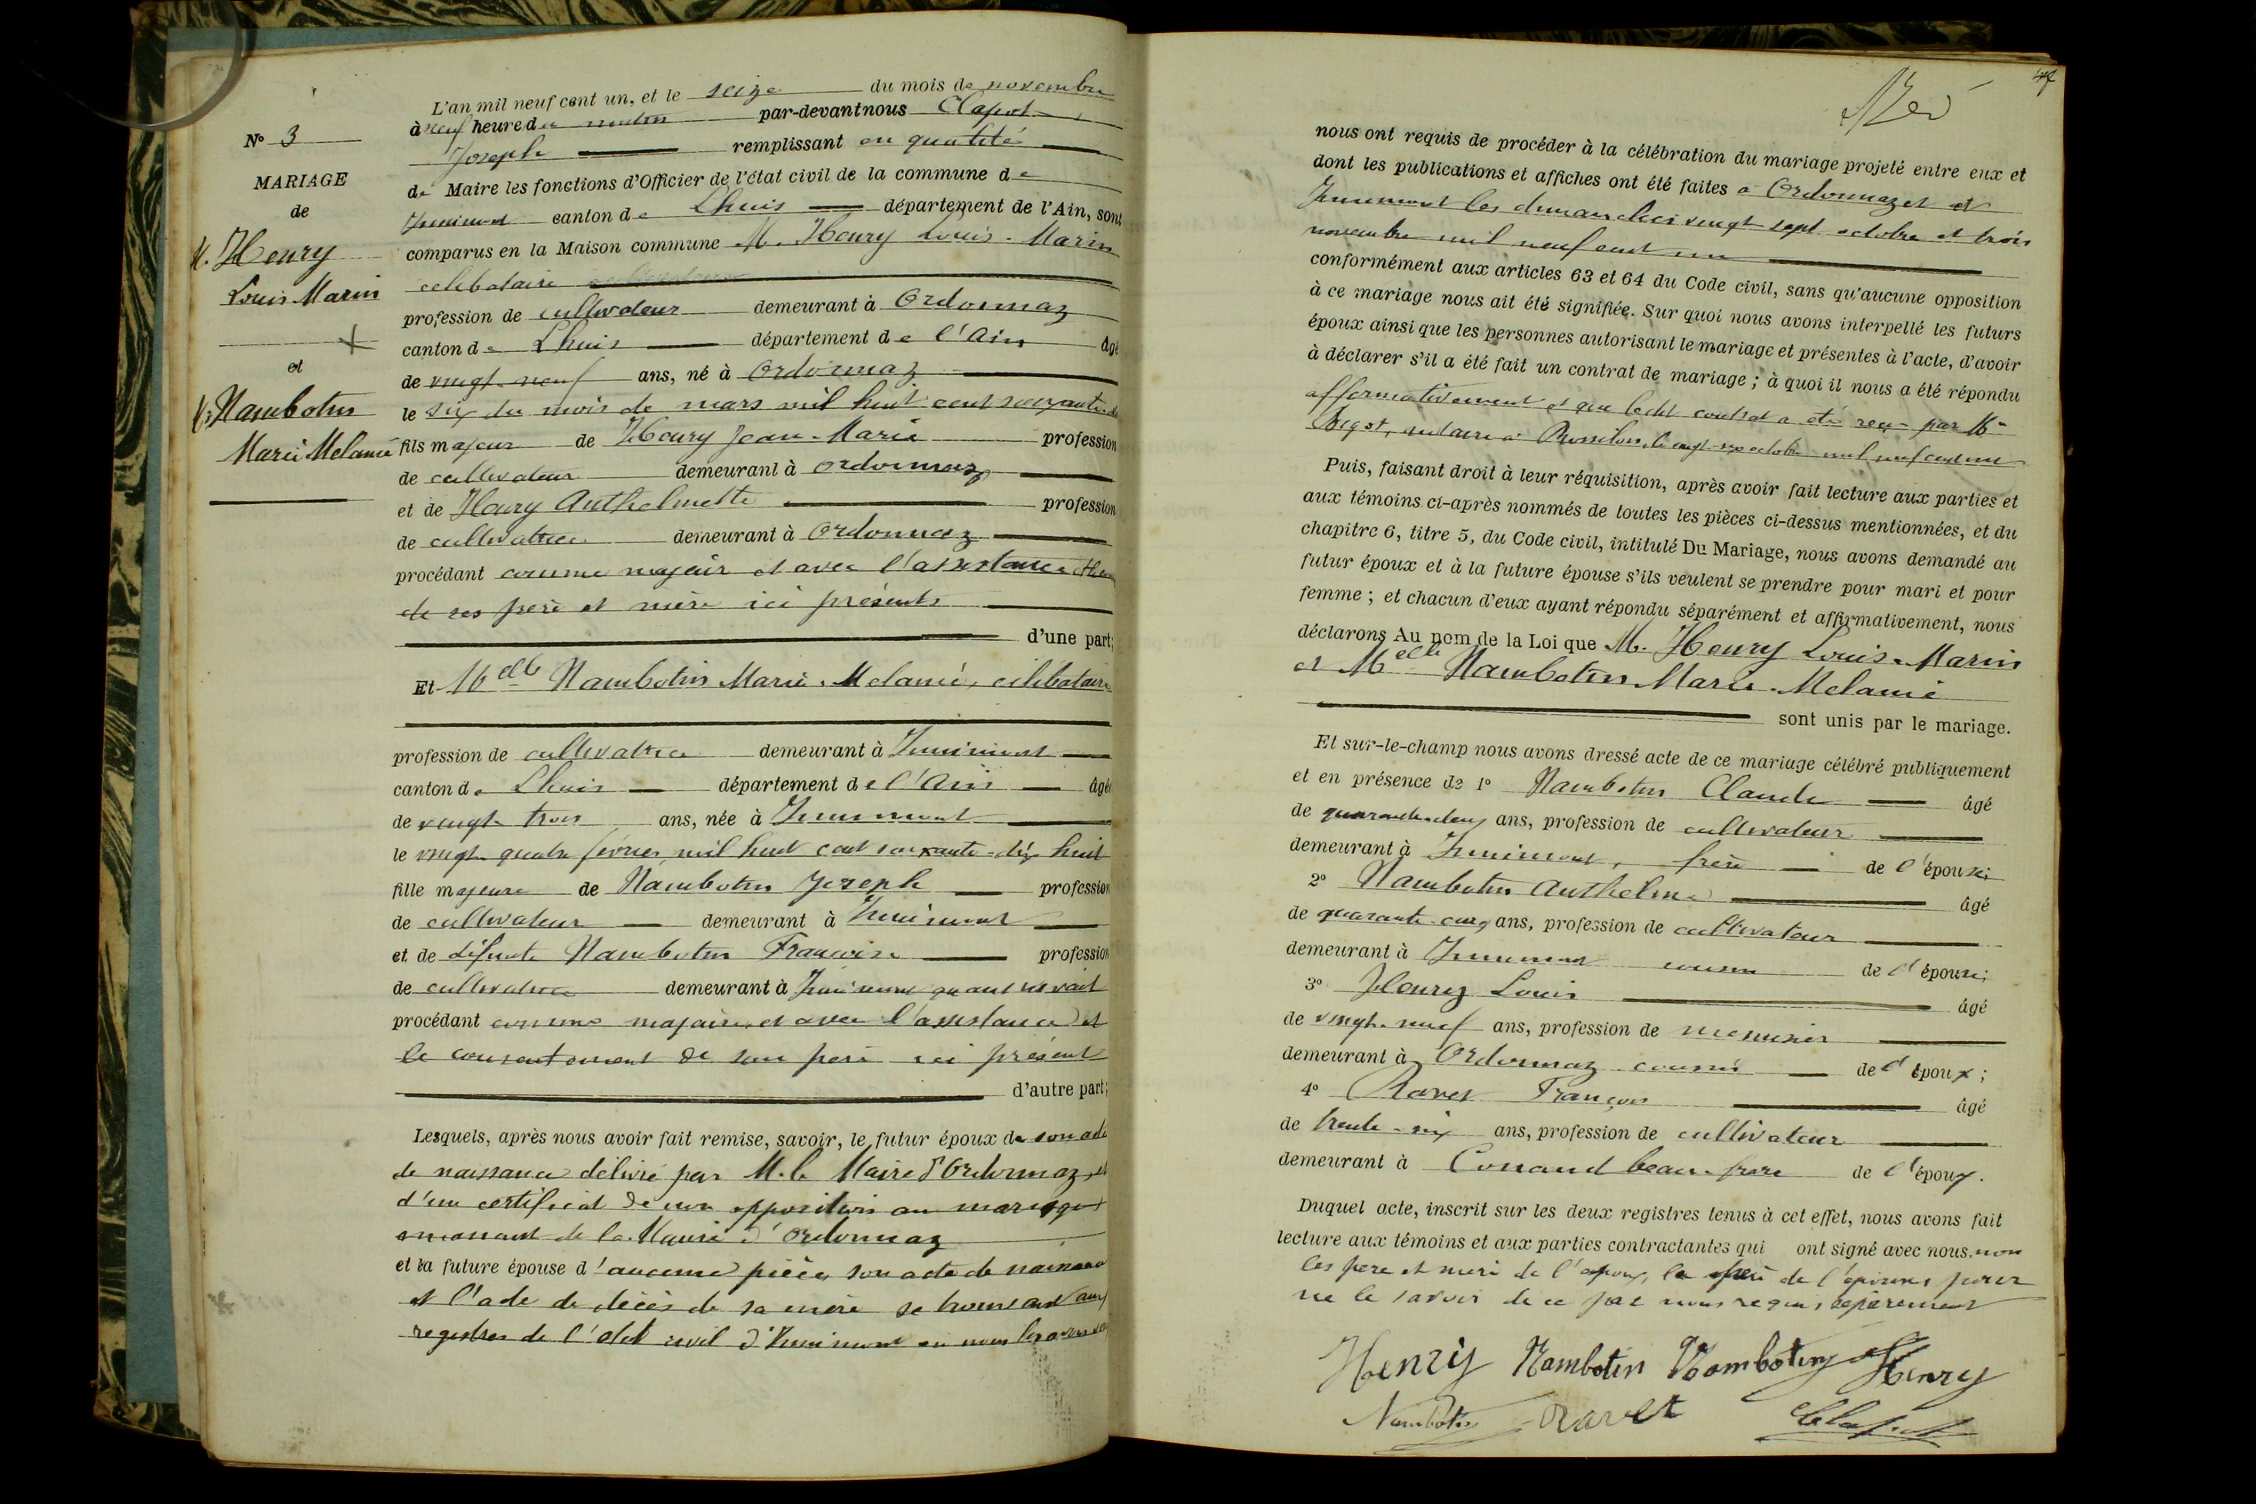 N° 3
MARIAGE
de
M. Henry
Louis Marin
et
Nambotin
Marie Melanie
L'an mil neuf cent un, et le seize du mois de novembre
à neuf heure du matin par-devant nous Clapot
Joseph remplissant en qualité
de Maire les fonctions d'Officier de l'état civil de la commune de
Innimont canton de Lhuis département de l'Ain, sont
comparus en la Maison commune M. Henry Louis-Marin
célibataire
profession de cultivateur demeurant à Ordonnaz
canton de Lhuis département de l'Ain âgé
de vingt-neuf ans, né à Ordonnaz
le six du mois de mars mil huit cent soixante
fils majeur de Henry Jean-Marie profession
de cultivateur demeurant à Ordonnaz
et de Henry Anthelmette profession
de cultivatrice demeurant à Ordonnaz
procédant comme majeur et avec l'assistance
de ses père et mère ici présents
d'une part;
Et Melle Nambotin Marie-Melanie, célibataire
profession de cultivatrice demeurant à Innimont
canton de Lhuis département de l'Ain âgée
de vingt trois ans, née à Innimont
le vingt quatre février mil huit cent soixante-dix huit
fille majeure de Nambotin Joseph profession
de cultivateur demeurant à Innimont
et de défunte Nambotin Françoise profession
de cultivatrice demeurant à Innimont quand vivait
procédant comme majeure et avec l'assistance et
le consentement de son père ici présent
d'autre part;
Lesquels, après nous avoir fait remise, savoir, le futur époux de son acte
de naissance délivré par M. le Maire d'Ordonnaz, et
d'un certificat de non opposition au mariage
émanant de la Mairie d'Ordonnaz
et la future épouse d'aucune pièce, son acte de naissance
et l'acte de décès de sa mère se trouvant aux
registres de l'état civil d'Innimont où nous les avons vus
47
nous ont requis de procéder à la célébration du mariage projeté entre eux et
dont les publications et affiches ont été faites à Ordonnaz et
Innimont les dimanches vingt sept octobre et trois
novembre mil neuf cent un
conformément aux articles 63 et 64 du Code civil, sans qu'aucune opposition
à ce mariage nous ait été signifiée. Sur quoi nous avons interpellé les futurs
époux ainsi que les personnes autorisant le mariage et présentes à l'acte, d'avoir
à déclarer s'il a été fait un contrat de mariage ; à quoi il nous a été répondu
affirmativement et que ledit contrat a été reçu par Me
notaire à Rossillon, le vingt octobre mil neuf cent un
Puis, faisant droit à leur réquisition, après avoir fait lecture aux parties et
aux témoins ci-après nommés de toutes les pièces ci-dessus mentionnées, et du
chapitre 6, titre 5, du Code civil, intitulé Du Mariage, nous avons demandé au
futur époux et à la future épouse s'ils veulent se prendre pour mari et pour
femme ; et chacun d'eux ayant répondu séparément et affirmativement, nous
déclarons Au nom de la Loi que M. Henry Louis-Marin
et Melle Nambotin Marie-Melanie
sont unis par le mariage.
Et sur-le-champ nous avons dressé acte de ce mariage célébré publiquement
et en présence de 1° Nambotin Claude âgé
de quarante-deux ans, profession de cultivateur
demeurant à Innimont, frère de l'épouse;
2° Nambotin Anthelme âgé
de quarante-cinq ans, profession de cultivateur
demeurant à Innimont cousin de l'épouse;
3° Henry Louis âgé
de vingt-neuf ans, profession de menuisier
demeurant à Ordonnaz cousin de l'époux;
4° Ravet François âgé
de trente-six ans, profession de cultivateur
demeurant à Conand beau-frère de l'époux.
Duquel acte, inscrit sur les deux registres tenus à cet effet, nous avons fait
lecture aux témoins et aux parties contractantes qui ont signé avec nous, non
les père et mère de l'époux, le père de l'épouse pour
ne le savoir de ce par nous requis séparément
Henry Nambotin Nambotin Henry
Nambotin Ravet Clapot